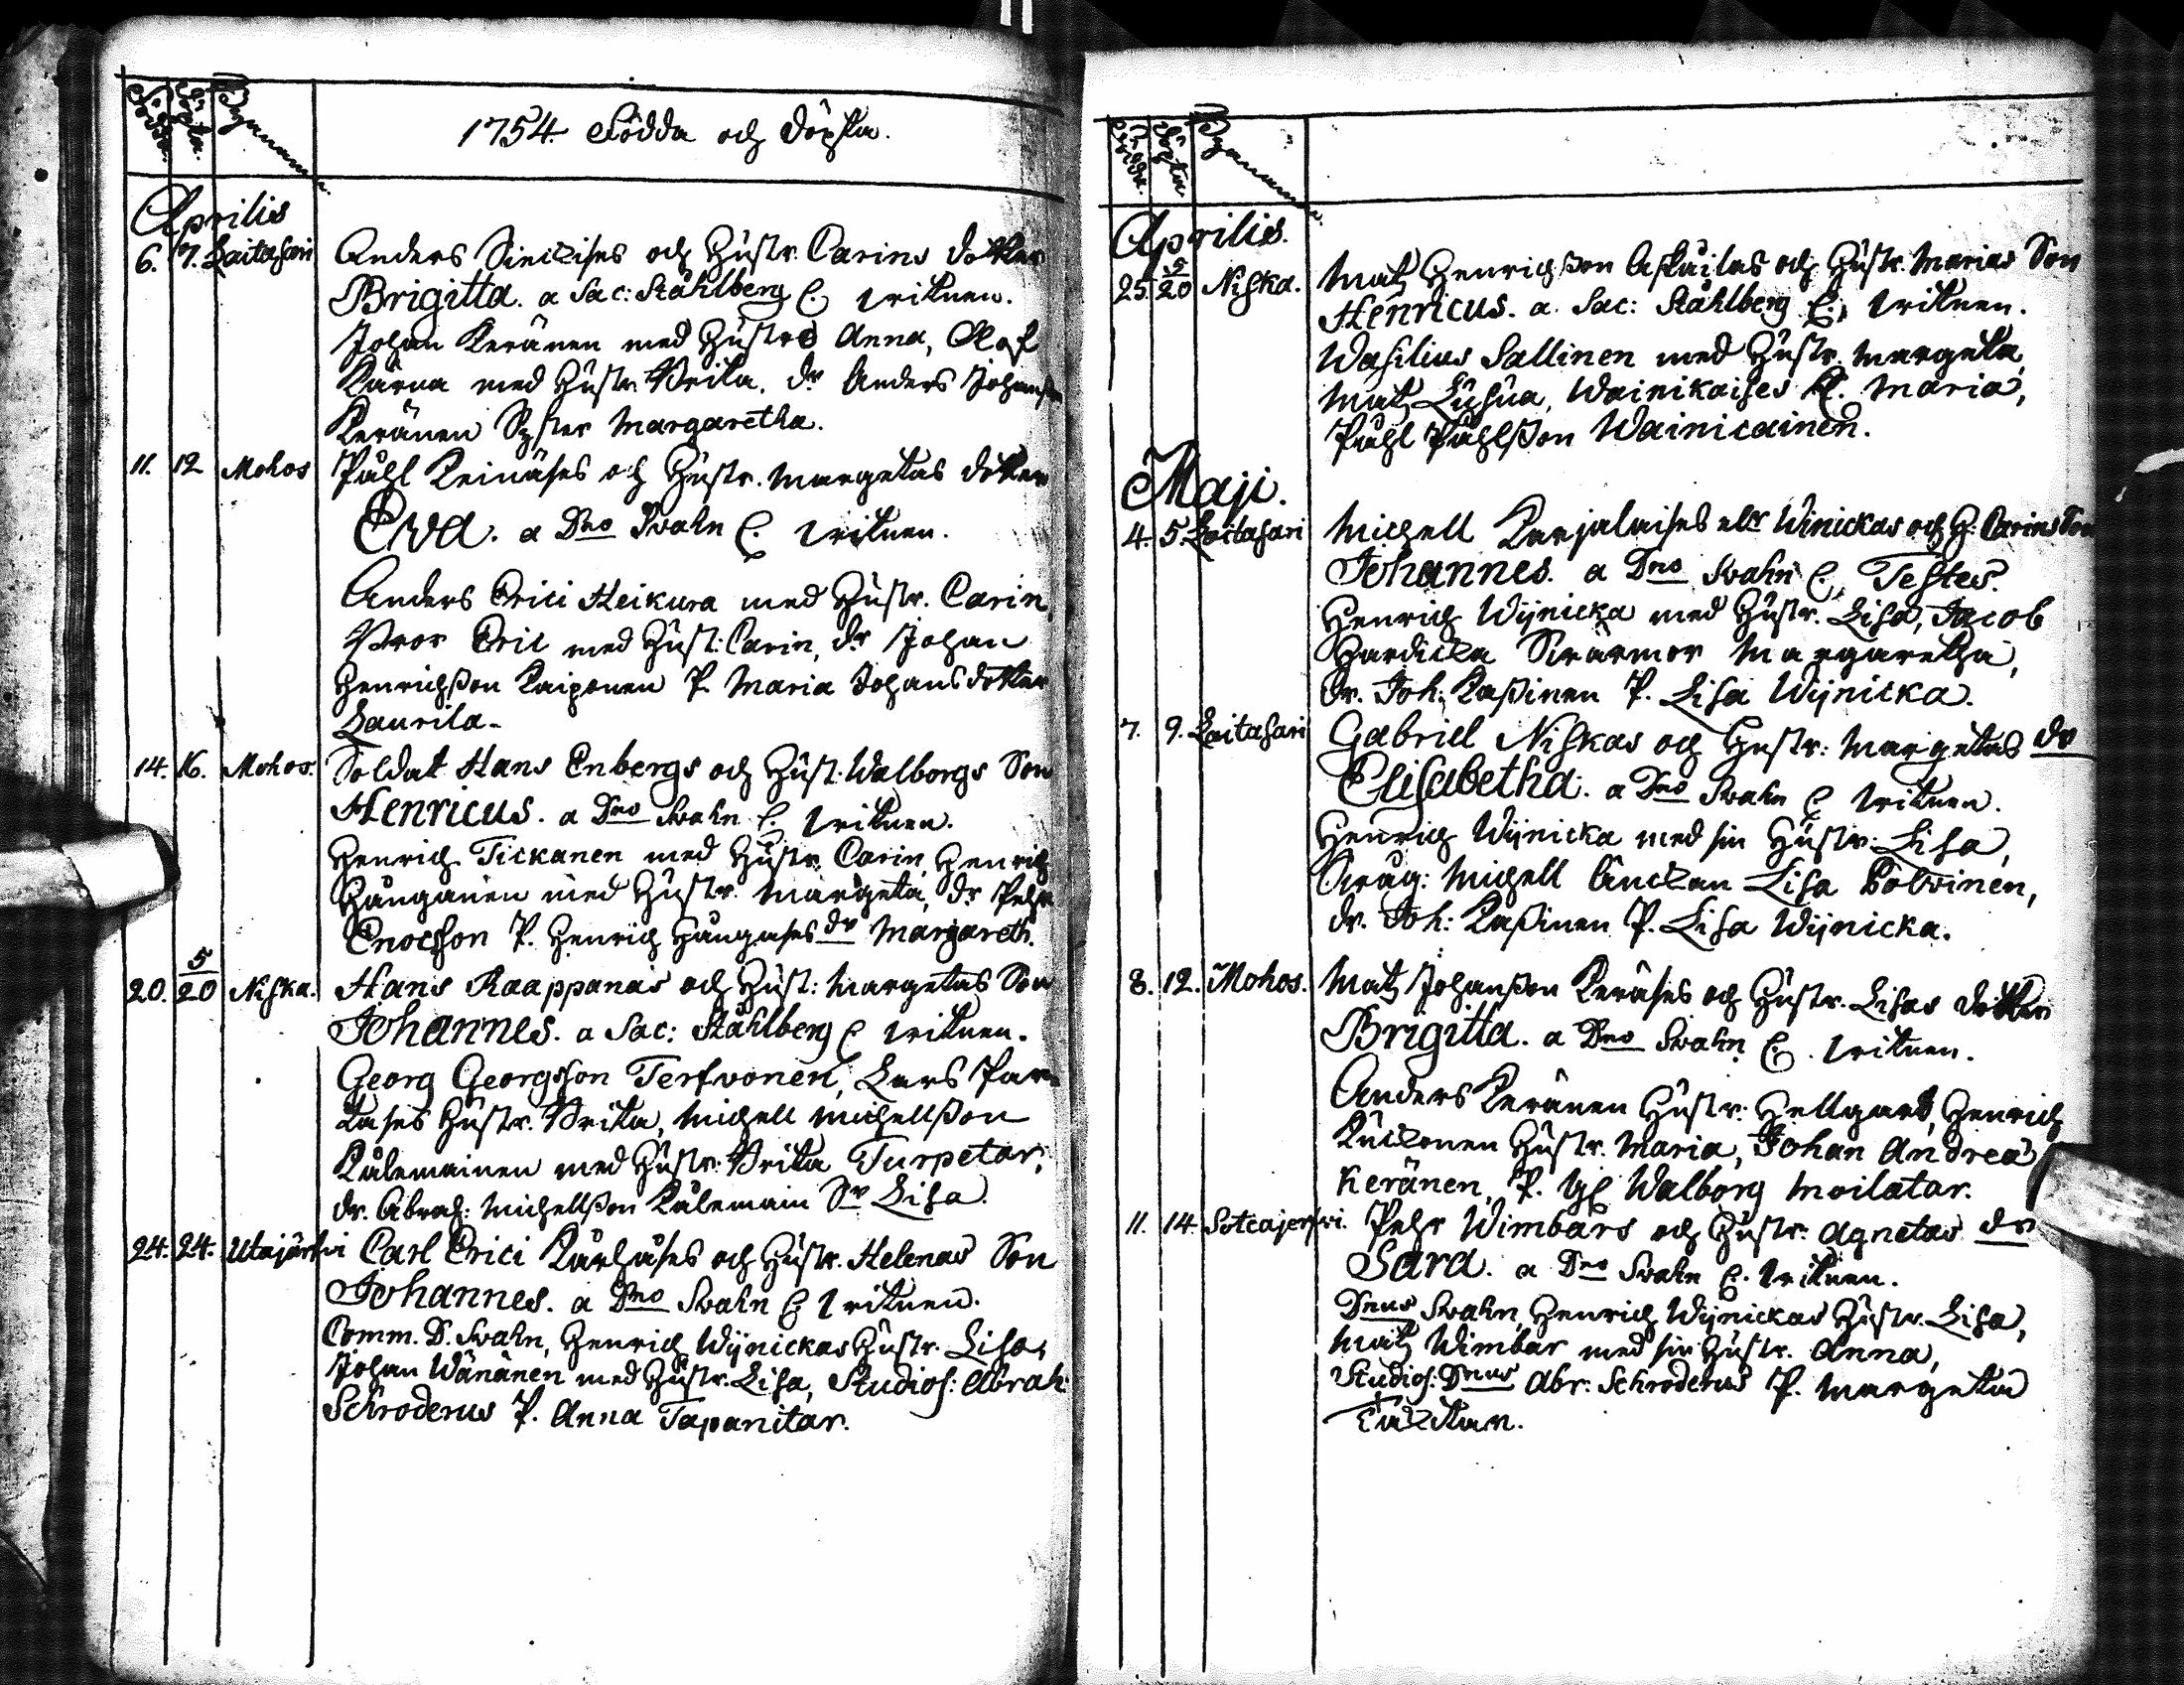 Födda. Döpta. Bynamnen.
1754. Födda och döpta.
Aprilis
6. 7. Laitasari Anders Sinckises och Hustr. Carins dotter
Brigitta. a Sac: Ståhlberg C. vitnen.
Johan Keränen med Hustro Anna, Olof
Kärna med Hustr. Brita. dr Anders Johans
Keränen Syster Margaretha.
11. 12 Mohos Påhl Keinäses och Hustr. Margetas dotter
Eva. a Dno Svahn C. vitnen.
Anders Erici Heikura med Hustr. Carin,
Bror Eric med Hust: Carin, dr Johan
Henrichsson Kaiponen P. Maria Johansdotter
Laurila.
14. 16. Mohos. Soldat Hans Enbergs och Hust: Walborgs Son
Henricus. a Dno Svahn C. vitnen.
Henrich Tickanen med Hustr. Carin, Henrich
Haunganen med Hustr. Margeta, dr Pehr
Enocsson P. Henrich Haungases dr Margareth.
20. 5/20 Niska. Hans Raappanas och Hust: Margetas Son
Johannes. a Sac: Ståhlberg C vitnen.
Georg Georgsson Terfvonen, Lars Par-
tases Hustr. Brita, Michell Michellsson
Kålemainen med Hustr. Brita Turpetar,
dr. Abrah: Michellsson Kålemain Sr Lisa.
24. 24. Utajärfvi Carl Erici Kärhäses och Hustr. Helenas Son
Johannes. a Dno Svahn C vitnen.
Comm. D. Svahn, Henrich Wijnickas Hustr. Lisa,
Johan Wänänen med Hustr. Lisa, Studios: Abrah:
Schroderus P. Anna Tapanitar.
Födda. Döpta. Bynamnen.
Aprilis.
25. 5/20 Niska. Matz Henrichsson Askailas och Hustr. Marias Son
Henricus. a. Sac: Ståhlberg C. vitnen.
Wasilius Sallinen med Hustr. Margeta,
Matz Luhua, Wainikaises H. Maria,
Påhl Påhlsson Wainicainen.
Maji.
4. 5. Laitasari Michell Karjalaises ellr Winickas och H: Carins Son
Johannes. a Dno Svahn C. Testes.
Henrich Wijnicka med Hustr. Lisa, Jacob
Hardicka Svärmor Margaretha,
Dr. Joh: Kassinen P. Lisa Wijnicka.
7. 9. Laitasari Gabriel Niskas och Hustr: Margetas dr
Elisabetha. a Dno Svahn C vitnen.
Henrich Wijnicka med sin Hustr: Lisa,
Michell änckan Lisa Polvinen,
dr. Joh: Kassinen P. Lisa Wijnicka.
8. 12. Mohos. Matz Johansson Keräses och Hustr. Lisas dotter
Brigitta. a Dno Svahn C. vitnen.
Anders Keränen Hustr: Hellgard, Henrich
Kuckonen Hustr. Maria, Johan Andreæ
Keränen, P. Walborg Moilatar.
11. 14. Soteajerfvi. Pehr Wimbars och Hustr. Agnetas dr
Sara. a Dno Svahn C. vitnen.
Dnus Svahn, Henrich Wijnickas Hustr. Lisa,
Matz Wimbar med sin Hustr. Anna,
Studios. Dnus Abr: Schroderus P. Margeta